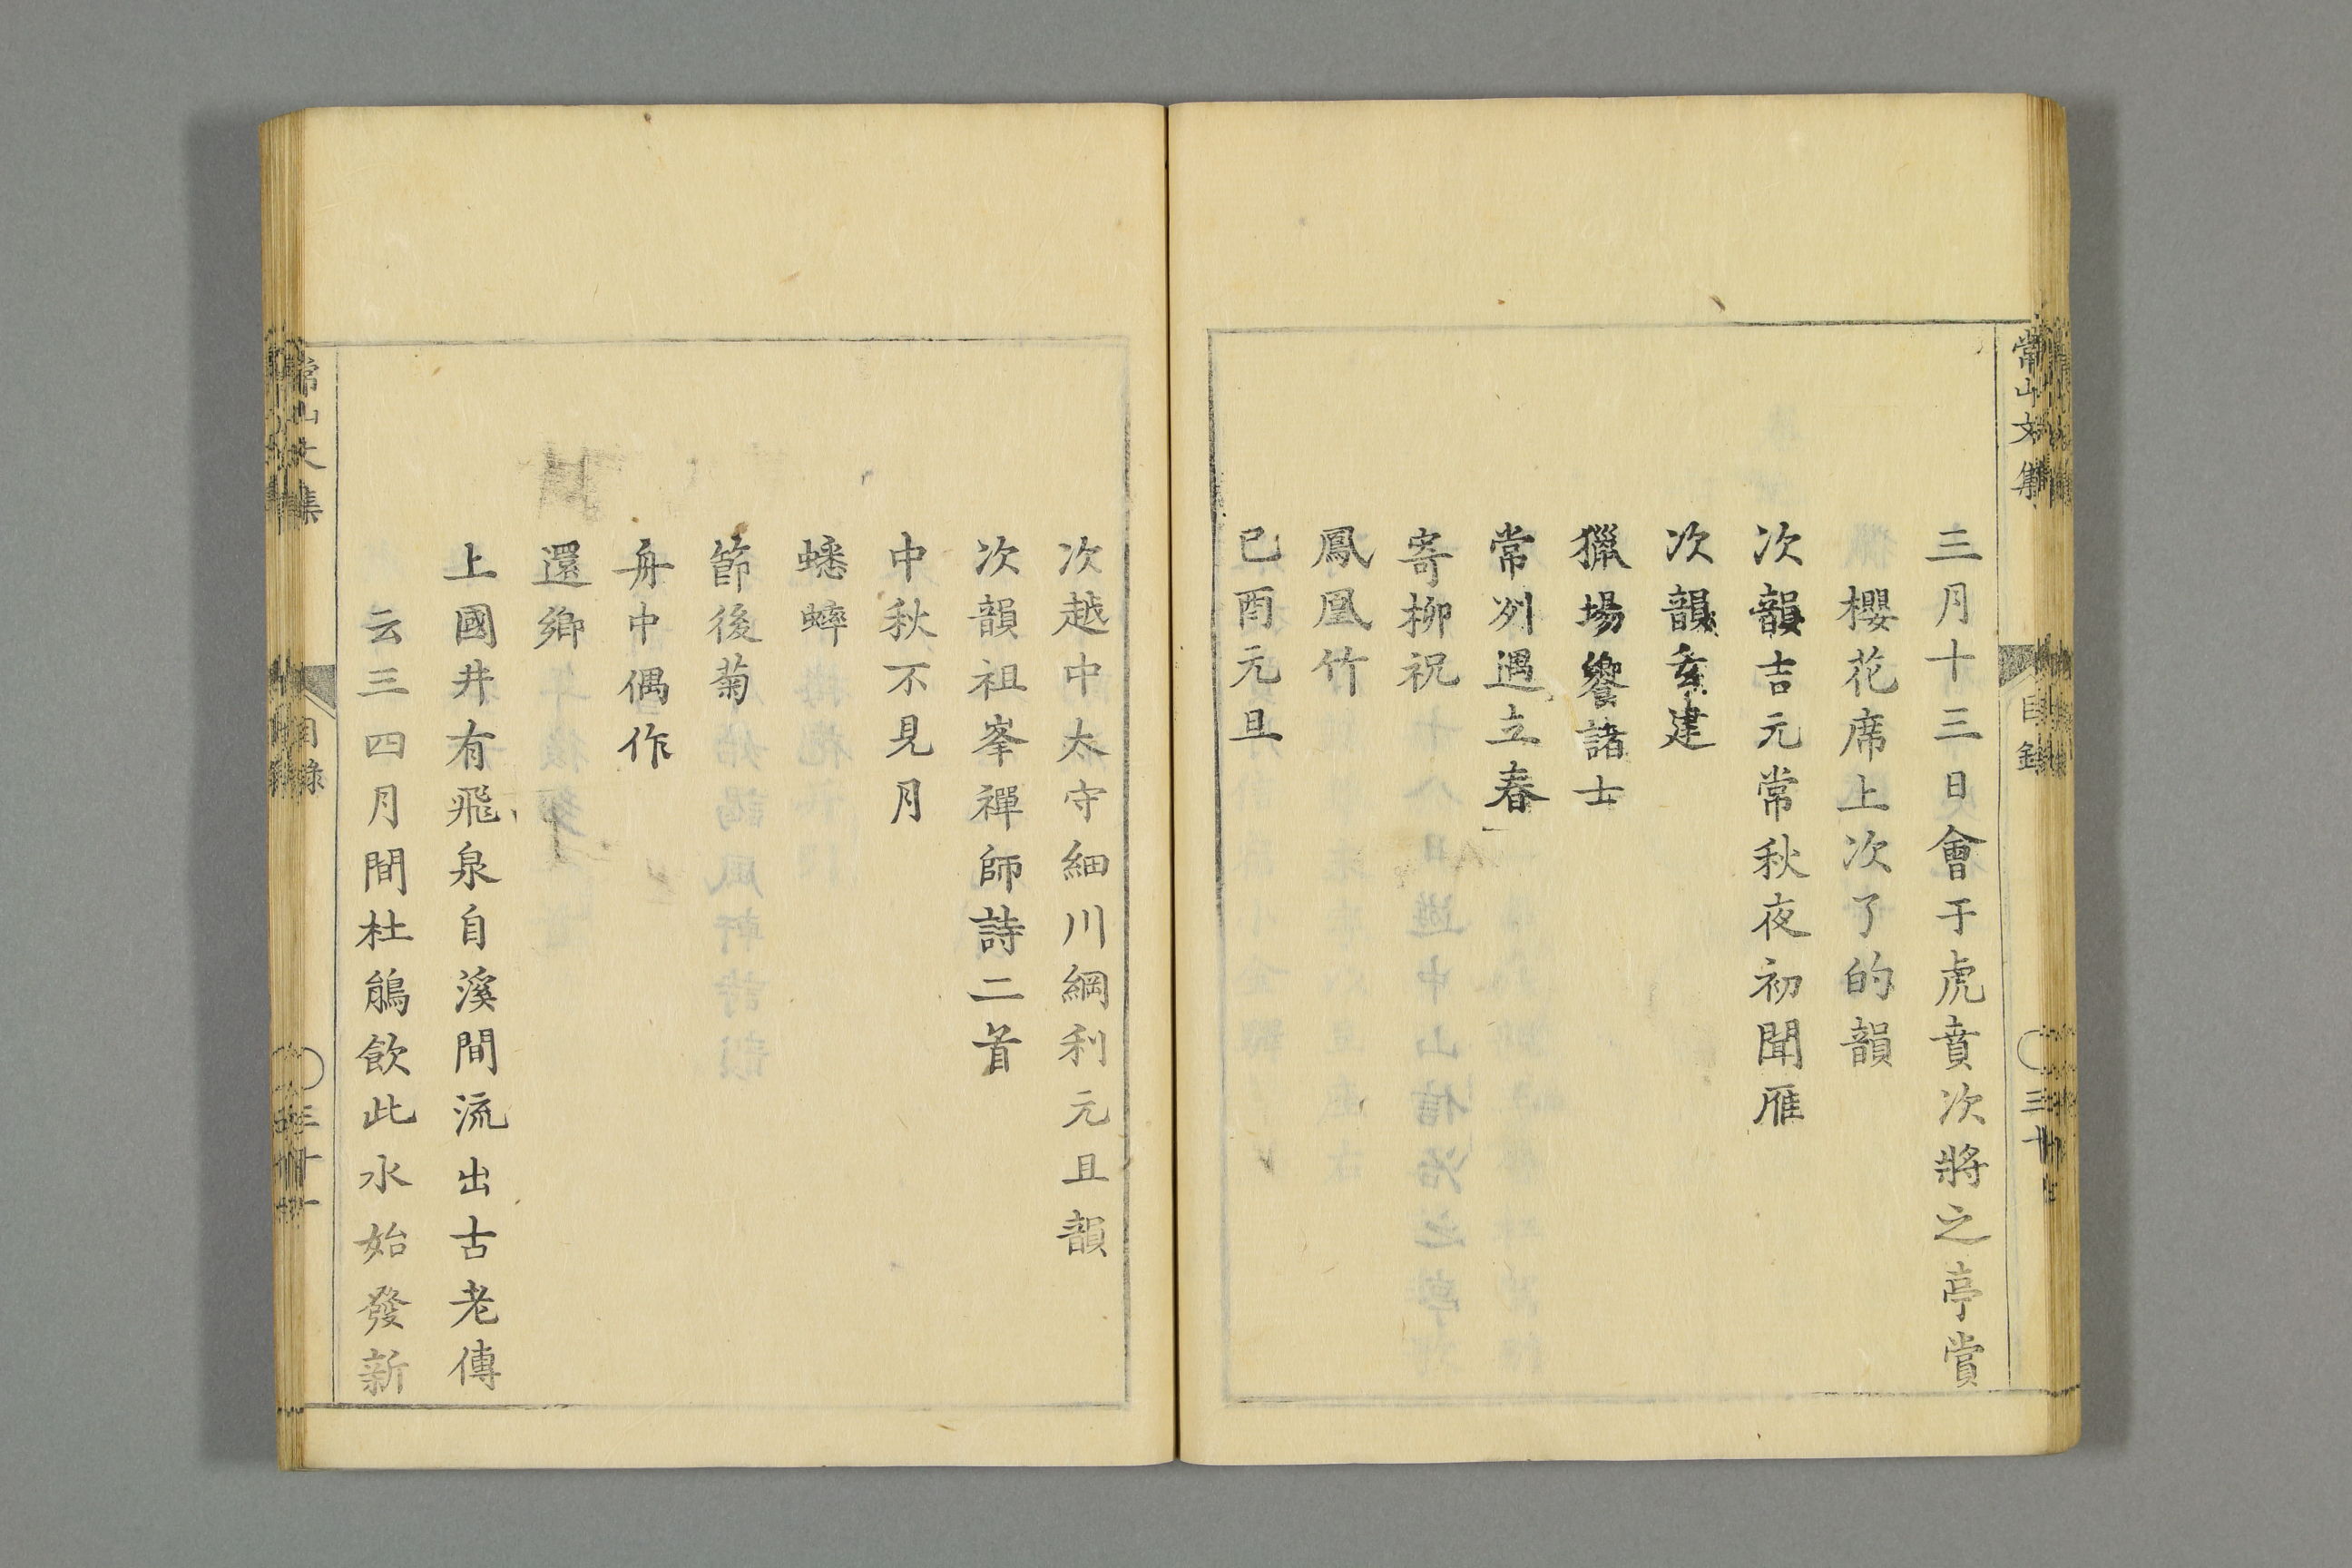 常山文集
目錄
三月十三日會于虎賁次將之亭賞
櫻花席上次了的韻
次韻吉元常秋夜初聞雁
次韻玄建
獵場饗諸士
常列遇立春
寄柳祝
鳳凰竹
己酉元旦
次越中太守細川綱利元旦韻
次韻祖峯禪師詩二首
中秋不見月
蟋蟀
節後菊
舟中偶作
還鄉
上國井有飛泉自溪間流出古老傳
云三四月間杜鵑飲此水始發新
常山文集
目錄
三十一